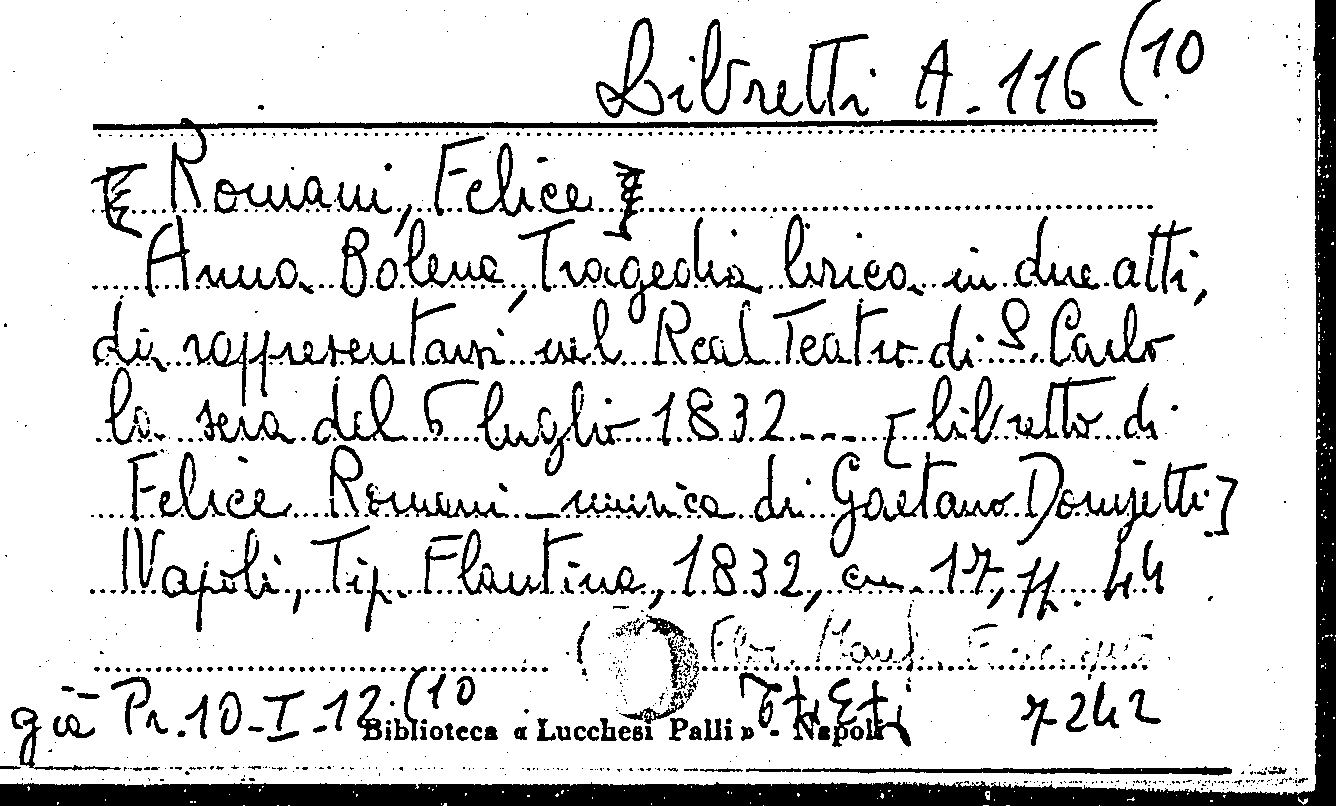 Libretti A. 116 (10
[Romani, Felice]
Anna Bolena, Tragedia lirica in due atti,
da rappresentarsi nel Real Teatro di S. Carlo
la sera del 6 luglio 1832 --- [libretto di
Felice Romani - musica di Gaetano Donizetti]
Napoli, Tip. Flautina, 1832, cm. 17, pp. 44
già Pr. 10-I-12 (10
7242
Biblioteca « Lucchesi Palli » - Napoli